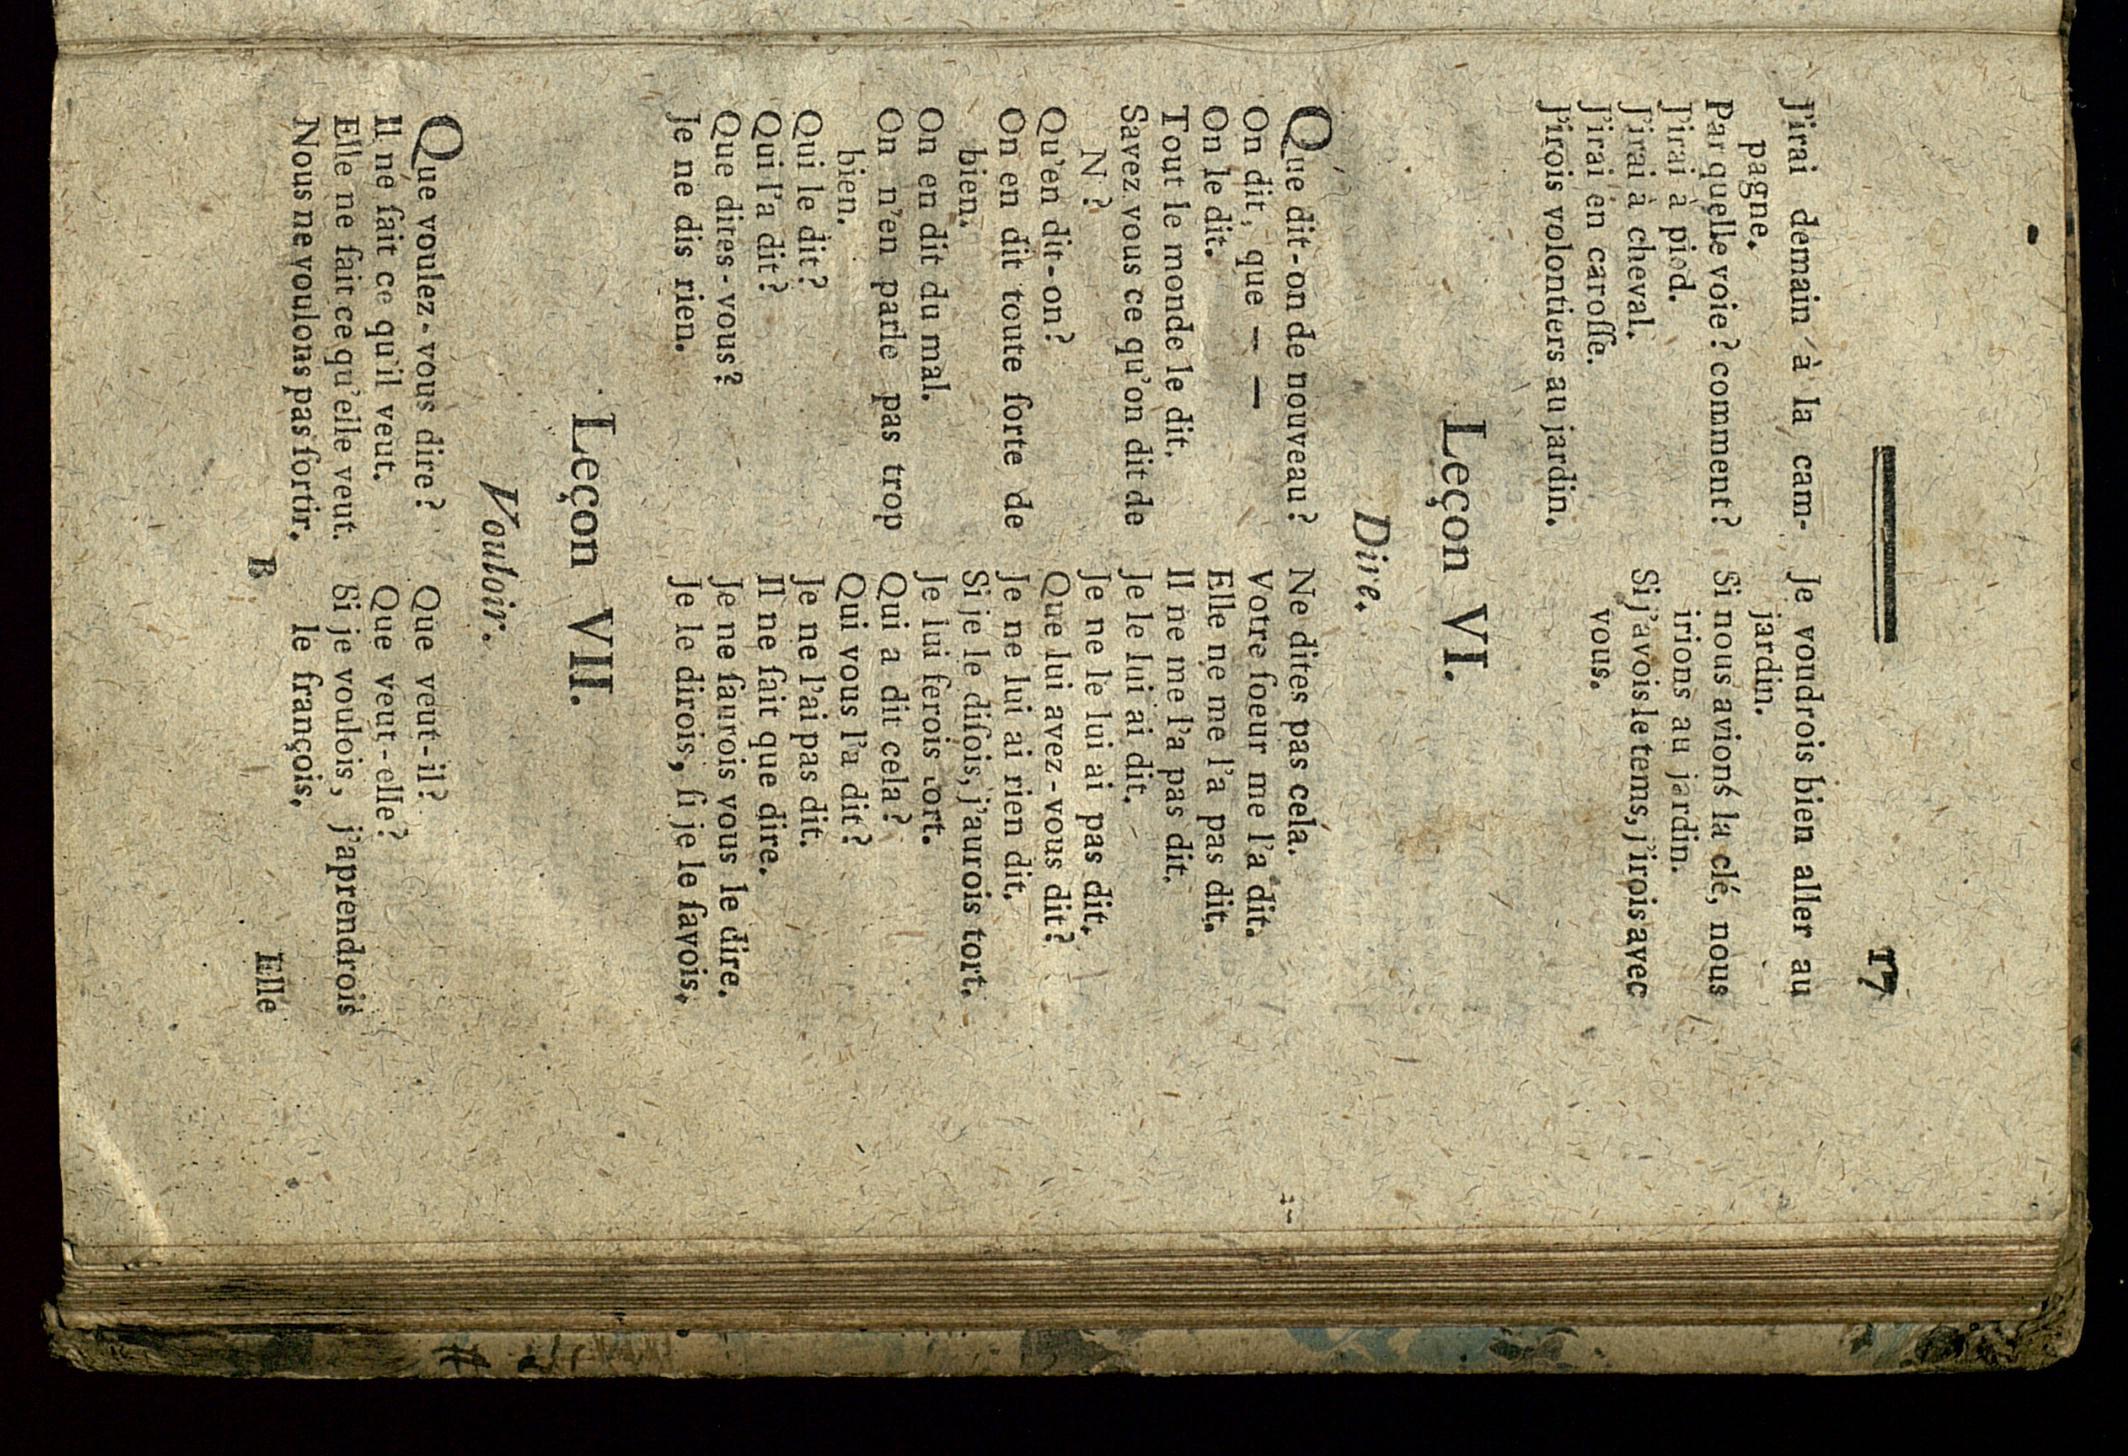 17
J'irai demain à la cam-
pagne.
Par quelle voie? comment?
J'irai à pied.
J'irai à cheval.
J'irai en caroſſe.
J'irois volontiers au jardin.
Je voudrois bien aller au
jardin.
Si nous avions la clé, nous
irions au jardin.
Si j'avois le tems, j'irois avec
vous.
Leçon VI.
Dire.
Que dit-on de nouveau?
On dit, que — —
On le dit.
Tout le monde le dit.
Savez vous ce qu'on dit de
N?
Qu'en dit-on?
On en dit toute ſorte de
bien.
On en dit du mal.
On n'en parle pas trop
bien.
Qui le dit?
Qui l'a dit?
Que dires-vous?
Je ne dis rien.
Ne dites pas cela.
Votre ſoeur me l'a dit.
Elle ne me l'a pas dit.
Il ne me l'a pas dit.
Je le lui ai dit.
Je ne le lui ai pas dit.
Que lui avez-vous dit?
Je ne lui ai rien dit.
Si je le diſois, j'aurois tort.
Je lui ferois tort.
Qui a dit cela?
Qui vous l'a dit?
Je ne l'ai pas dit.
Il ne fait que dire.
Je ne ſaurois vous le dire.
Je le dirois, ſi je le ſavois.
Leçon VII.
Vouloir.
Que voulez-vous dire?
Il ne fait ce qu'il veut.
Elle ne fait ce qu'elle veut.
Nous ne voulons pas ſortir.
Que veut-il?
Que veut-elle?
Si je voulois, j'aprendrois
le françois.
B
Elle